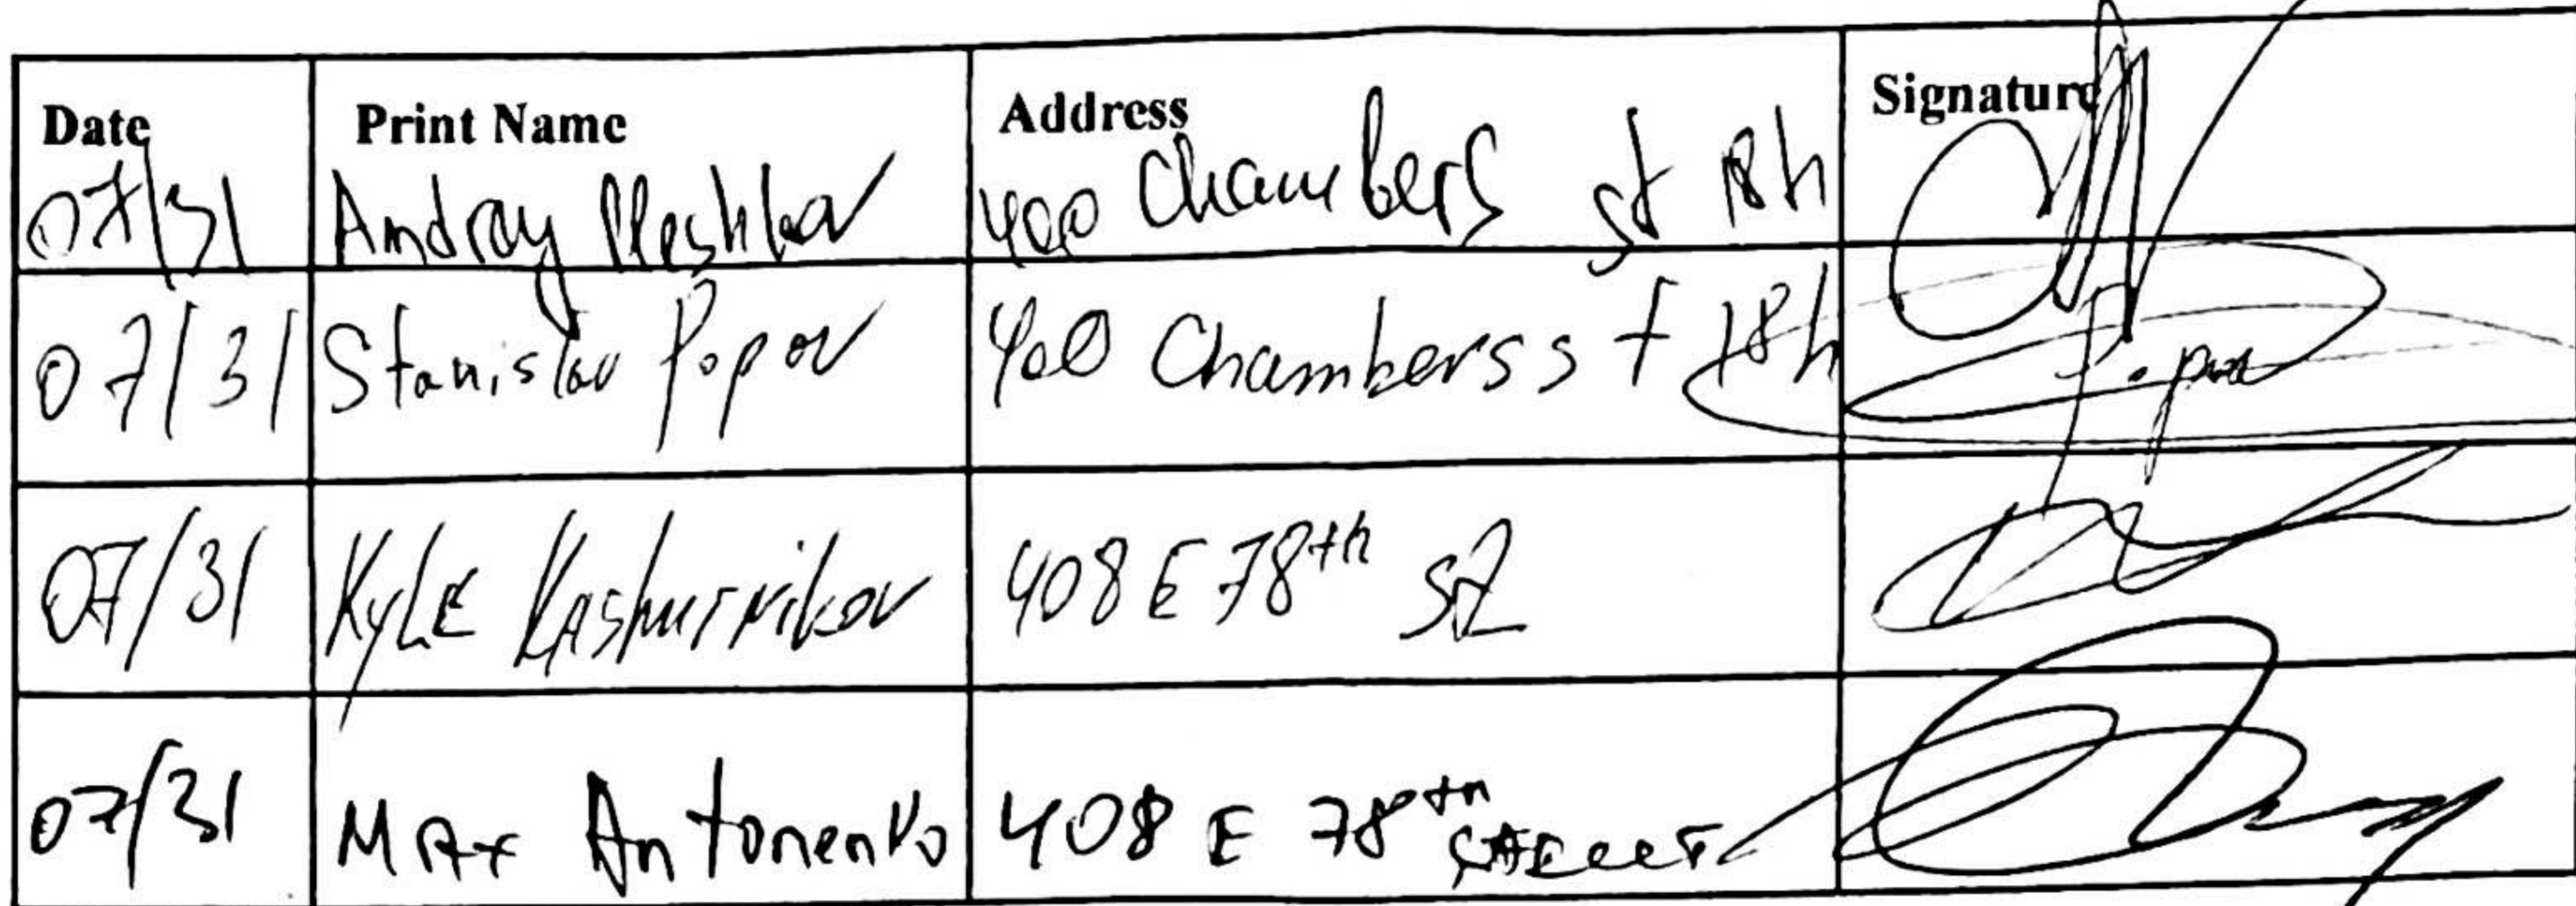 Date Print Name Address Signature
07/31 Andray Pleshkov 400 Chambers st 18h
07/31 Stanislav Popov 400 Chamberss t 18h
07/31 KyLE KAshurnikov 408 E 78th st
07/31 MAx Antonenko 408 E 78th